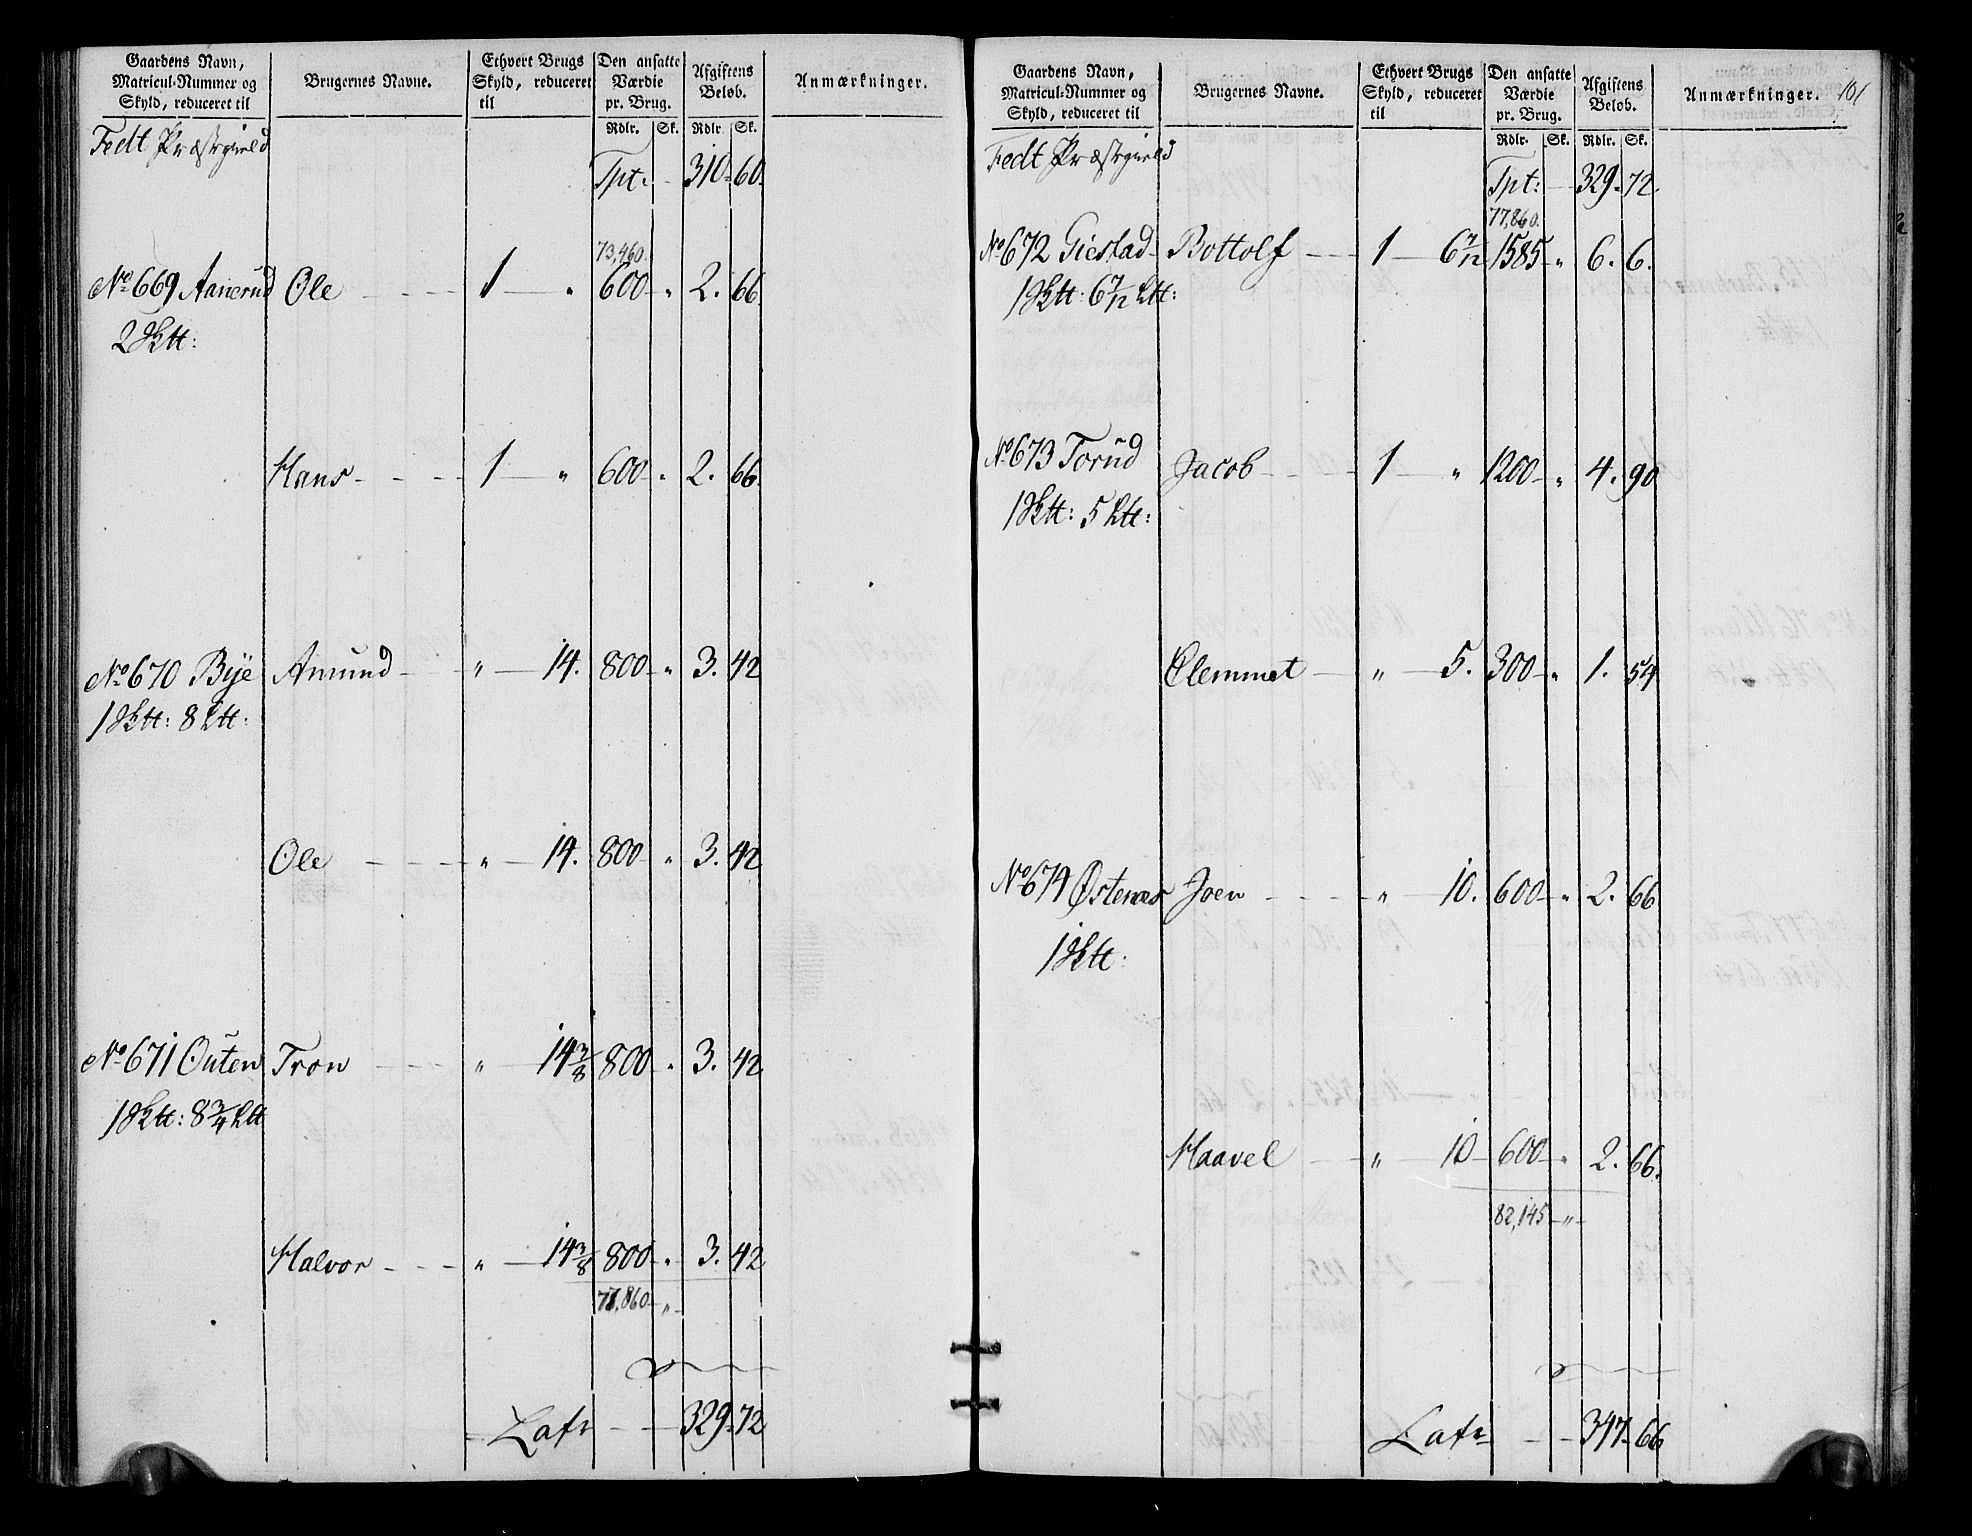 Gaardens Navn, Matricul-Nummer og Skyld, reduceret til
Brugernes Navne.
Ethvert Brugs Skyld, reduceret til
Den ansatte Værdie pr. Brug.
Afgiftens Beløb.
Anmærkninger.
Rdlr. Sk. Rdlr. Sk.
Fedt Præstegield
Tpt: - 310 - 60.
73,460.
No 669 Aanerud Ole - - - 1 - " 600 - " 2. 66.
2 Sktt:
Hans - - - 1 - " 600 - " 2. 66.
No 670 Bye Amund - - - " - 14. 800 - " 3. 42
1 Sktt: 8 Ltt:
Ole - - - " - 14. 800 - " 3. 42
No 671 Outen Tron - - - " - 14 3/8 800 - " 3. 42
1 Sktt: 8 3/4 Ltt
Halvor - - - " - 14 3/8 800 - " 3. 42
77,860 - "
Latr - - 329 - 72
Gaardens Navn, Matricul-Nummer og Skyld, reduceret til
Brugernes Navne.
Ethvert Brugs Skyld, reduceret til
Den ansatte Værdie pr. Brug.
Afgiftens Beløb.
Anmærkninger.
101
Rdlr. Sk. Rdlr. Sk.
Fedt Præstegield
Tpt: - 329 - 72.
77,860.
No 672 Giestad Bottolf - - 1 - 6 7/12 1585 - " 6. 6.
1 Sktt: 6 7/12 Ltt:
No 673 Torud Jacob - - - 1 - " 1200 - " 4. 90
1 Sktt: 5 Ltt:
Clemmet - " - 5. 300 - " 1. 54
No 674 Østenæs Joen - - - " - 10. 600 - " 2. 66
1 Sktt:
Haavel - " - 10 - 600 - " 2. 66.
82,145 - "
Latr - - 347 - 66